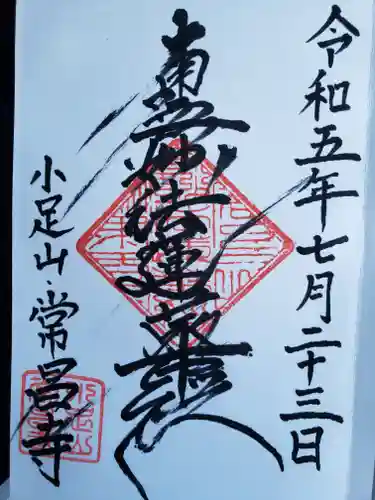 令和五年七月二十三日
南無妙法蓮華経
小足山・常昌寺